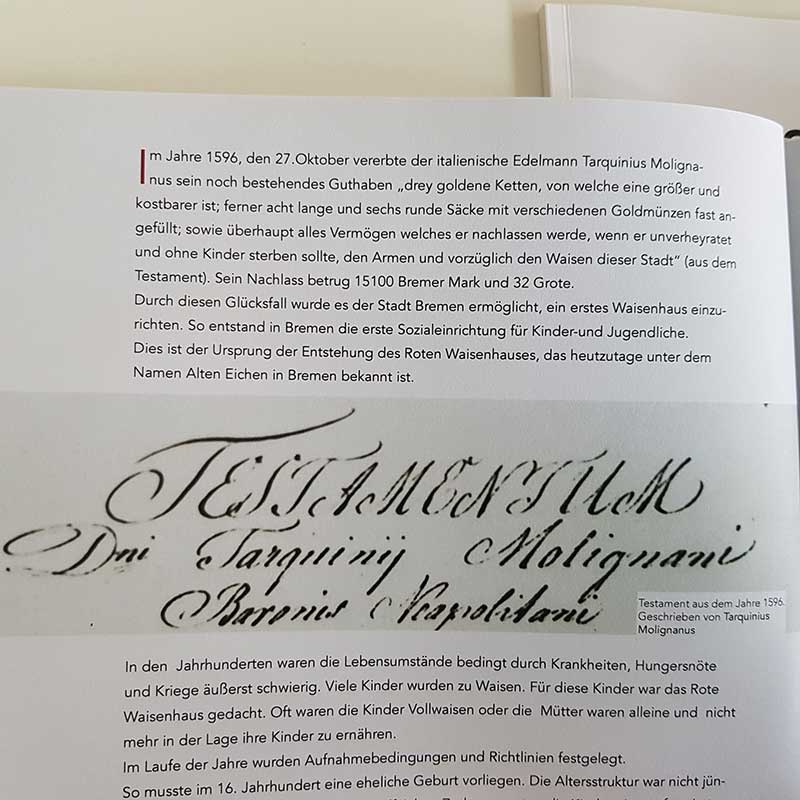 Im Jahre 1596, den 27.Oktober vererbte der italienische Edelmann Tarquinius Moligna-
nus sein noch bestehendes Guthaben „drey goldene Ketten, von welche eine größer und
kostbarer ist; ferner acht lange und sechs runde Säcke mit verschiedenen Goldmünzen fast an-
gefüllt; sowie überhaupt alles Vermögen welches er nachlassen werde, wenn er unverheyratet
und ohne Kinder sterben sollte, den Armen und vorzüglich den Waisen dieser Stadt“ (aus dem
Testament). Sein Nachlass betrug 15100 Bremer Mark und 32 Grote.
Durch diesen Glücksfall wurde es der Stadt Bremen ermöglicht, ein erstes Waisenhaus einzu-
richten. So entstand in Bremen die erste Sozialeinrichtung für Kinder-und Jugendliche.
Dies ist der Ursprung der Entstehung des Roten Waisenhauses, das heutzutage unter dem
Namen Alten Eichen in Bremen bekannt ist.
TESTAMENTUM
Dni Tarquinij Molignani
Baronis Neapolitani
Testament aus dem Jahre 1596.
Geschrieben von Tarquinius
Molignanus
In den Jahrhunderten waren die Lebensumstände bedingt durch Krankheiten, Hungersnöte
und Kriege äußerst schwierig. Viele Kinder wurden zu Waisen. Für diese Kinder war das Rote
Waisenhaus gedacht. Oft waren die Kinder Vollwaisen oder die Mütter waren alleine und nicht
mehr in der Lage ihre Kinder zu ernähren.
Im Laufe der Jahre wurden Aufnahmebedingungen und Richtlinien festgelegt.
So musste im 16. Jahrhundert eine eheliche Geburt vorliegen. Die Altersstruktur war nicht jün-